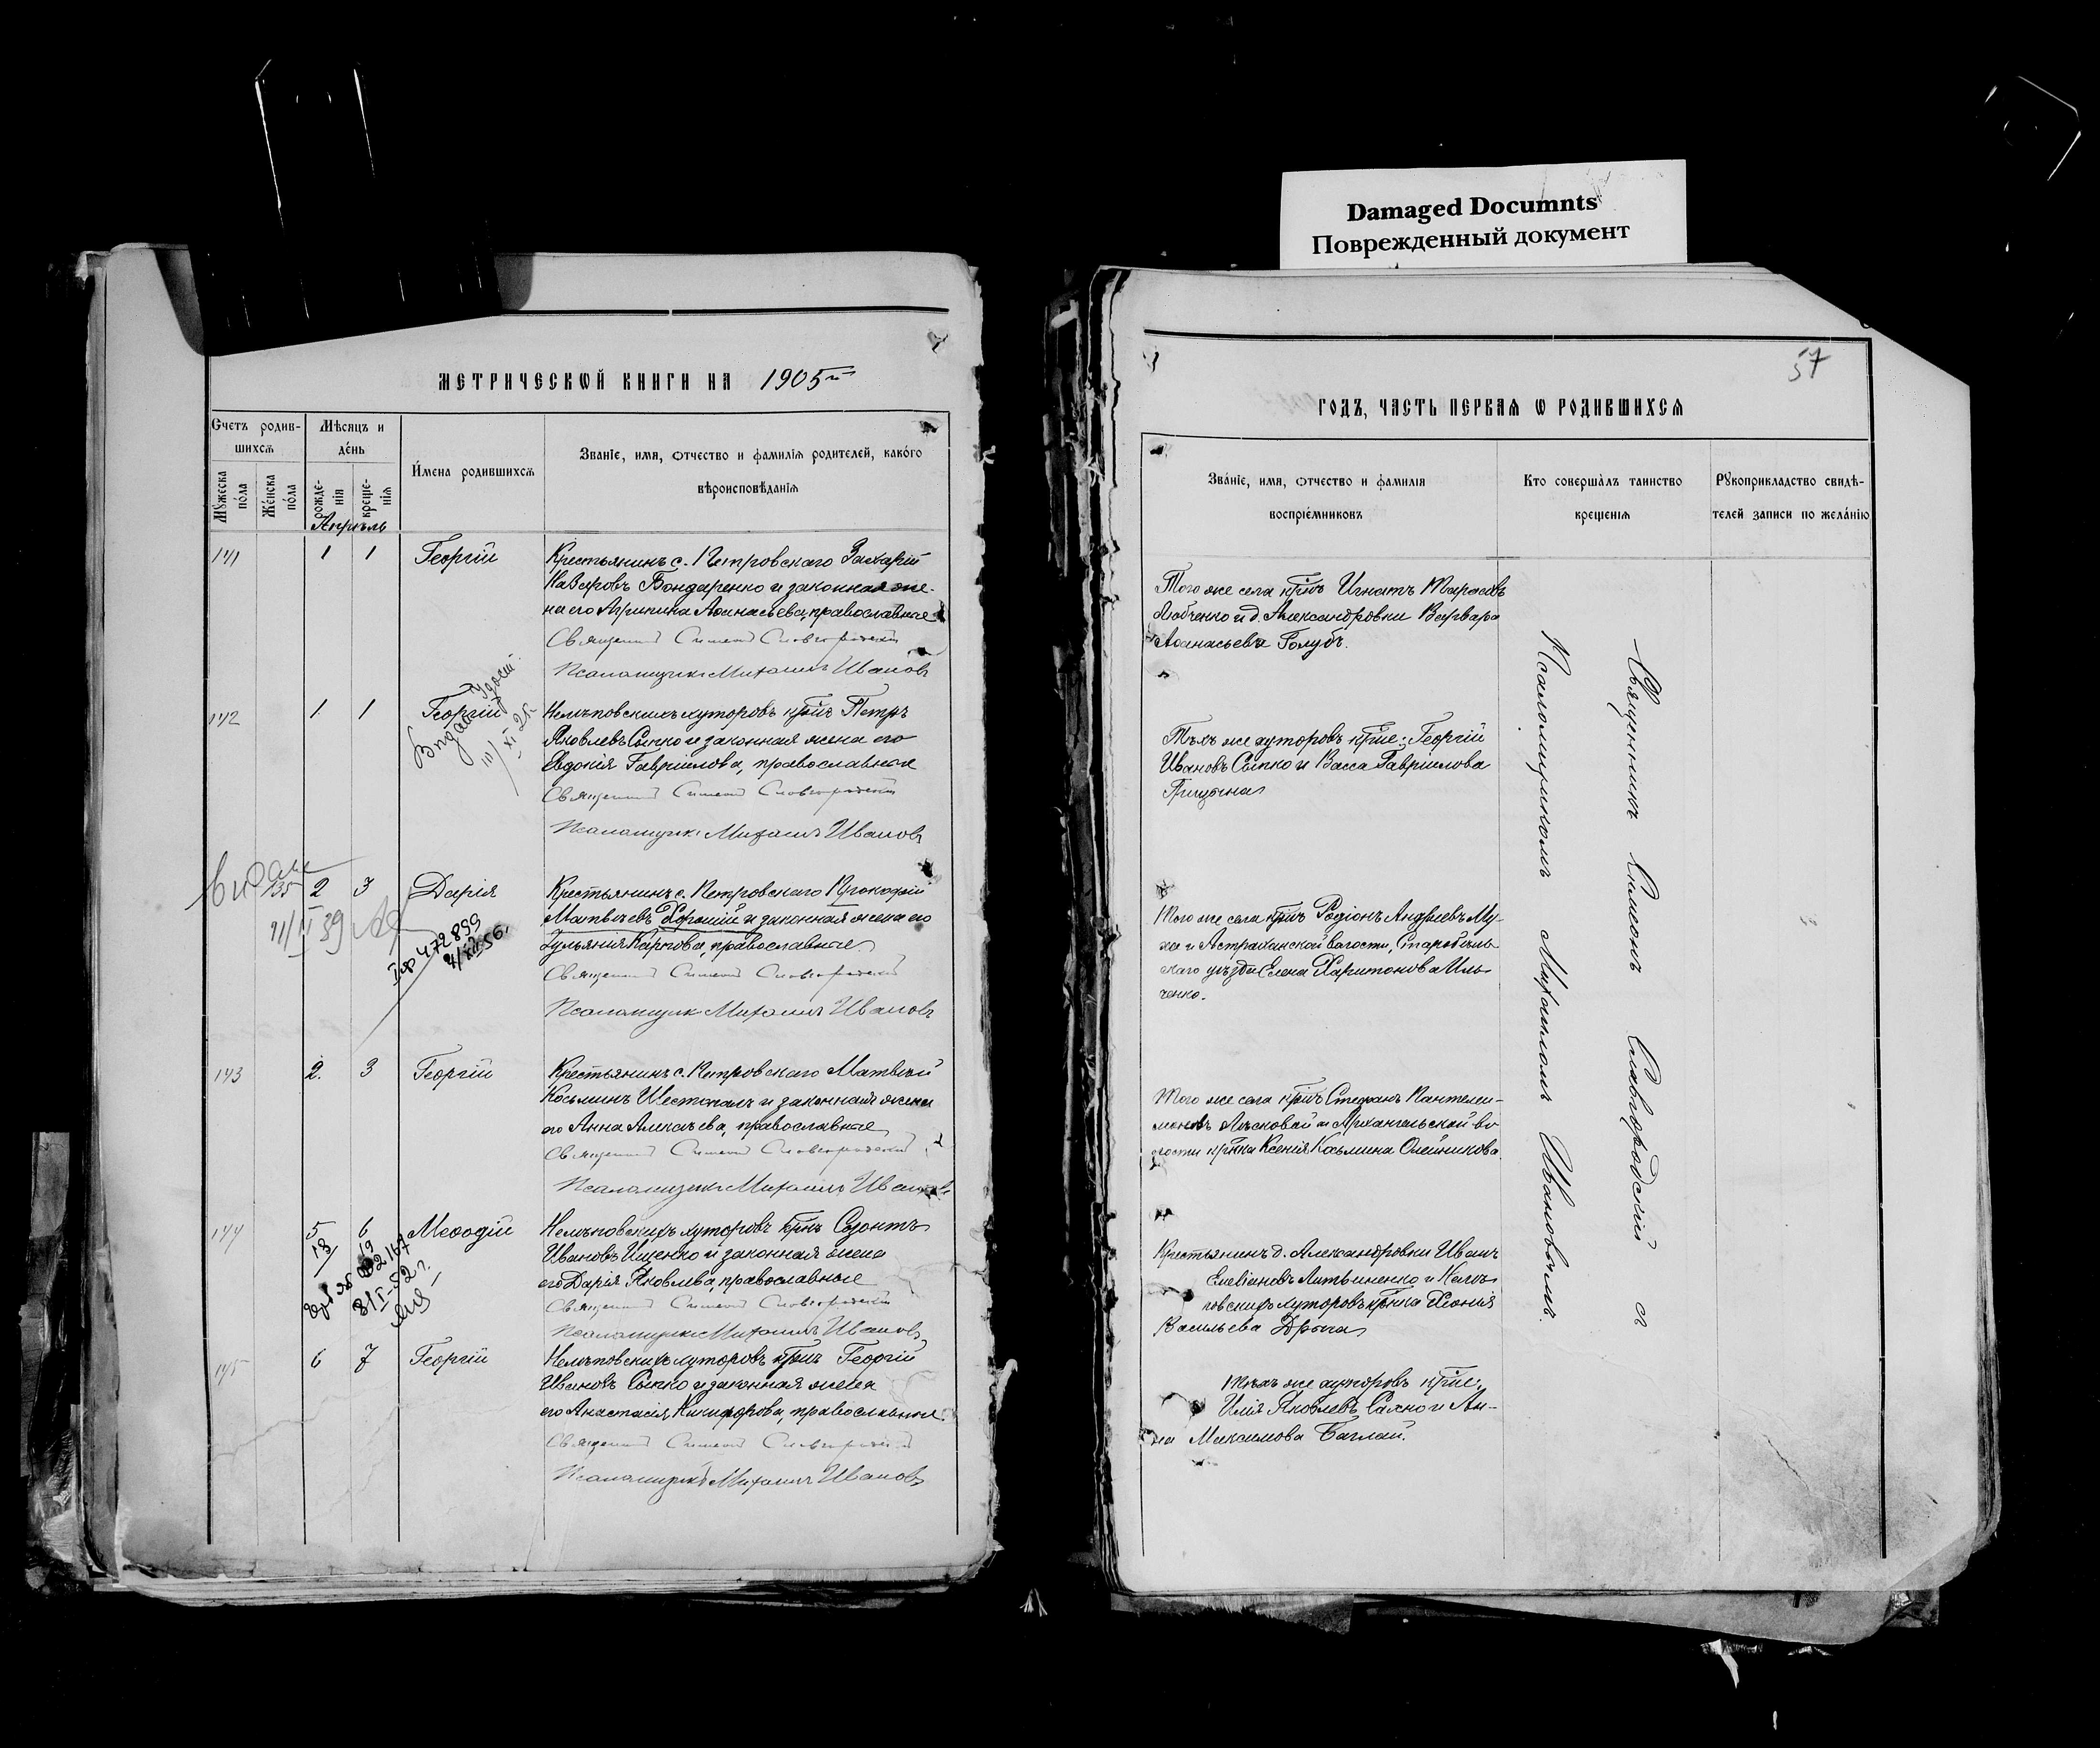 Damaged Documnts
Поврежденный документ
МЕТРИЧЕСКОЙ КНИГИ НА 1905й
Счетъ родив-
шихся
Мѣсяцъ и
день
Мужеска
пола
Женска
пола
рожде-
нія
креще-
нія
Имена родившихся
Званіе, имя, отчество и фамилія родителей, какого
вѣроисповѣданія
Апрѣль
141 1 1 Георгій
Крестьянинъ с. Петровскаго Захарій
Назаровъ Бондаренко и законная же-
на его Агрипина Аѳанасьева, православные
Священникъ Симеонъ Славгородскій
Псаломщикъ Михаилъ Ивановъ
142 1 1 Георгій
111/XI 25
Нелѣповскихъ хуторовъ кр҃нъ Петръ
Яковлевъ Сыпко и законная жена его
Евдокія Гавріилова, православные
Священникъ Симеонъ Славгородскій
Псаломщикъ Михаилъ Ивановъ
135 2 3 Дарія
11/II 39
472899
4/XII-56.
Крестьянинъ с. Петровскаго Прокофій
Матвѣевъ Хорошій и законная жена его
Іульянія Карпова, православные
Священникъ Симеонъ Славгородскій
Псаломщикъ Михаилъ Ивановъ
143 2. 3 Георгій
Крестьянинъ с. Петровскаго Матвѣй
Косьминъ Шестопалъ и законная жена
его Анна Алексѣева, православные
Священникъ Симеонъ Славгородскій
Псаломщикъ Михаилъ Ивановъ
144 5 6 Меѳодій
18 19
Нелѣповскихъ хуторовъ кр҃нъ Созонтъ
Ивановъ Ищенко и законная жена
его Дарія Яковлева, православные
Священникъ Симеонъ Славгородскій
Псаломщикъ Михаилъ Ивановъ
145 6 7 Георгій
Нелѣповскихъ хуторовъ кр҃нъ Георгій
Ивановъ Сыпко и законная жена
его Анастасія Никифорова, православные.
Священникъ Симеонъ Славгородскій
Псаломщикъ Михаилъ Ивановъ
57
ГОДЪ, ЧАСТЬ ПЕРВАЯ Ѡ РОДИВШИХСЯ
Званіе, имя, отчество и фамилія
воспріемниковъ
Кто совершалъ таинство
крещенія
Рукоприкладство свидѣ-
телей записи по желанію
Того же села кр҃нъ Игнатъ Тарасовъ
Любченко и д. Александровки Варвара
Аѳанасьева Голубъ.
Тѣхъ же хуторовъ кр҃не: Георгій
Ивановъ Сыпко и Васса Гавриилова
Того же села кр҃нъ Родіонъ Андреевъ Му-
ха и Астраханской волости, Старобѣль-
скаго уѣзда Елена Харитонова Иль-
ченко.
Того же села кр҃нъ Стефанъ Пантелеи-
моновъ Лѣсковой и Архангельской во-
лости кр҃нка Ксенія Косьмина Олейникова
Крестьянинъ д. Александровки Иванъ
Литвиненко и Нелѣ-
повскихъ хуторовъ кр҃нка Хіонія
Васильева
Тѣхъ же хуторовъ кр҃не:
Илія Яковлевъ Сахно и Ан-
на Максимова Баглай.
Священникъ Симеонъ Славгородскій съ
Псаломщикомъ Михаиломъ Ивановымъ.